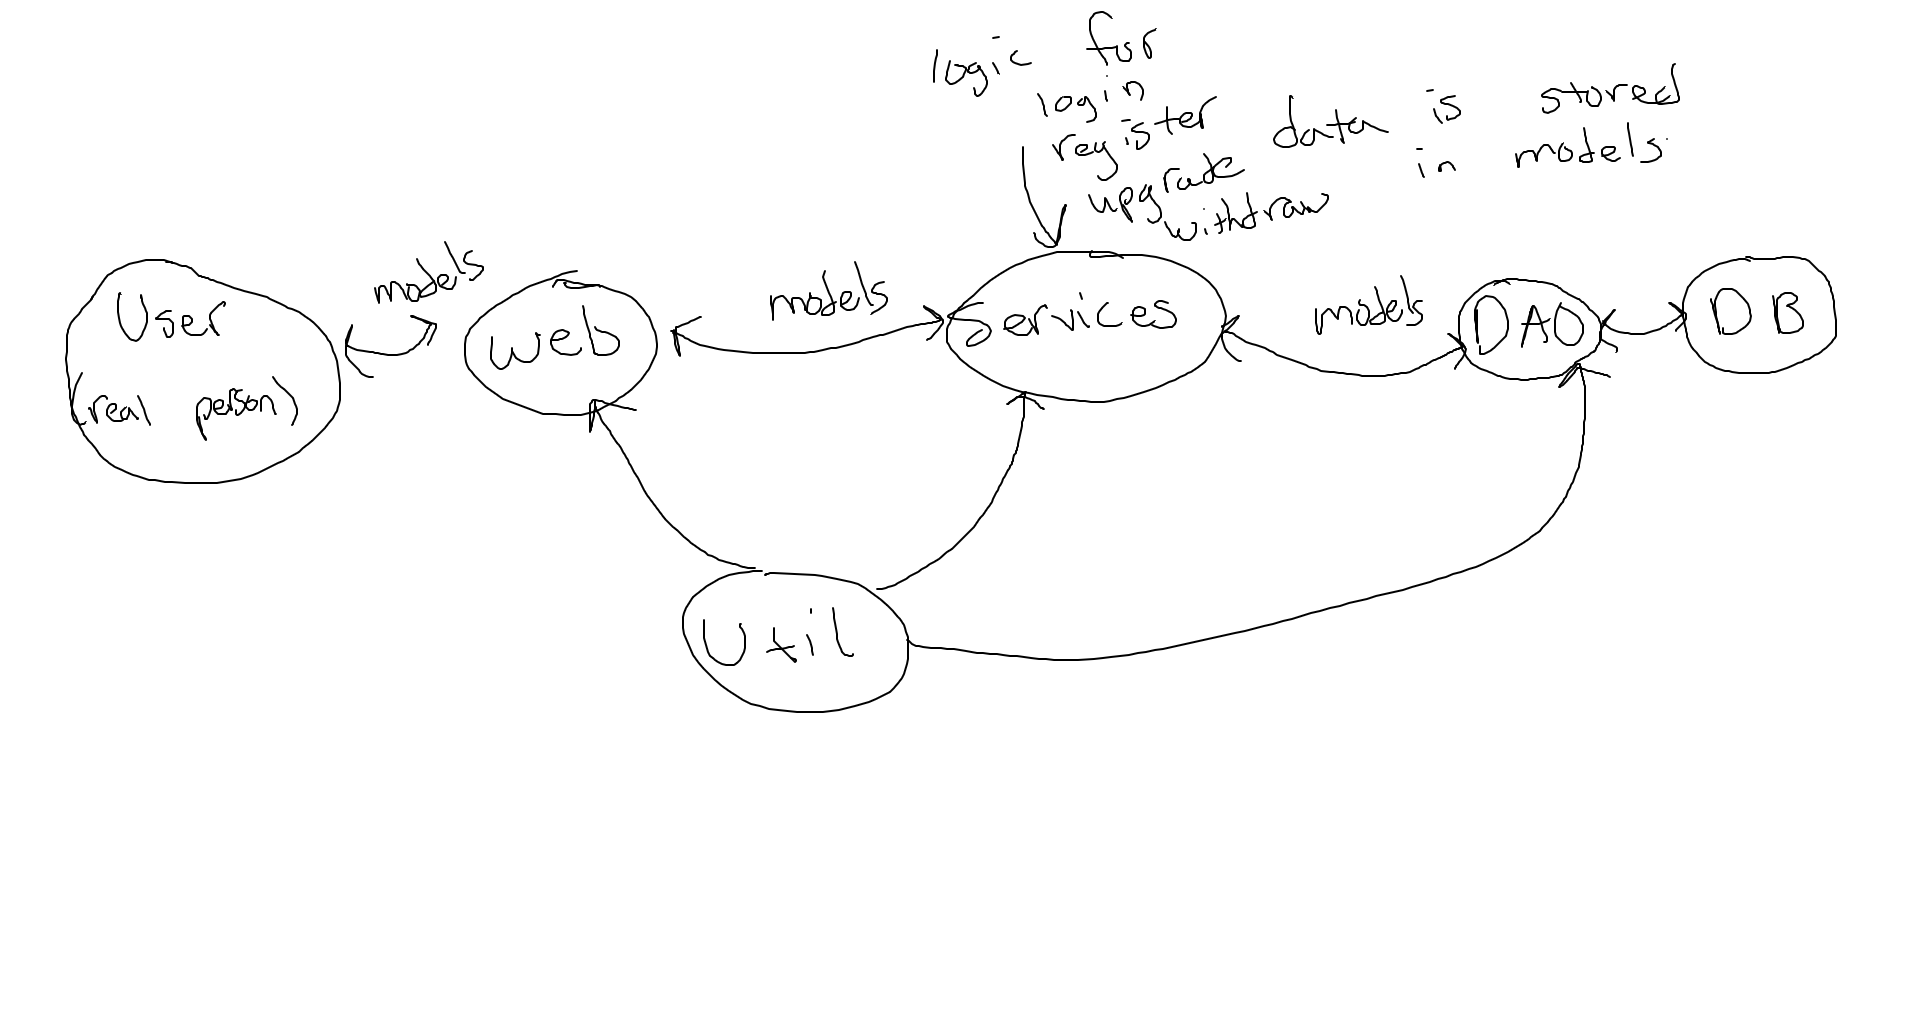 logic for
login
register
upgrade
withdraw
data is stored
in models
User
(real person)
models
web
models
Services
models
DAO
DB
Util